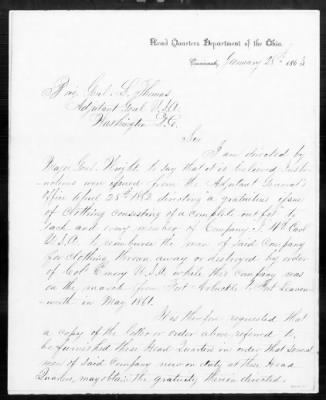 Head Quarters Department of the Ohio.
Cincinnati, January 28th 1863
Brig. Genl. L. Thomas
Adjutant Genl. U.S.A.
Washington D.C.
Sir
I am directed by
Major Genl. Wright, to say that it is believed Instr-
uctions were issued from the Adjutant General's
Office April 25th 1862 directing a gratuitous issue
of Clothing consisting of a complete outfit to
each and every member of Company 4th Cavl
U.S.A. to reimburse the men of said Company
for Clothing thrown away or destroyed by order
of Col. Emory U.S.A. while this Company was
on the march from Fort Arbuckle to Fort Leaven-
worth in May 1861.
It is therefore requested that
a copy of the letter or order above referred to
be furnished these Head Quarters in order that several
men of said Company now on duty at these Head
Quarters, may obtain the gratuity therein directed.